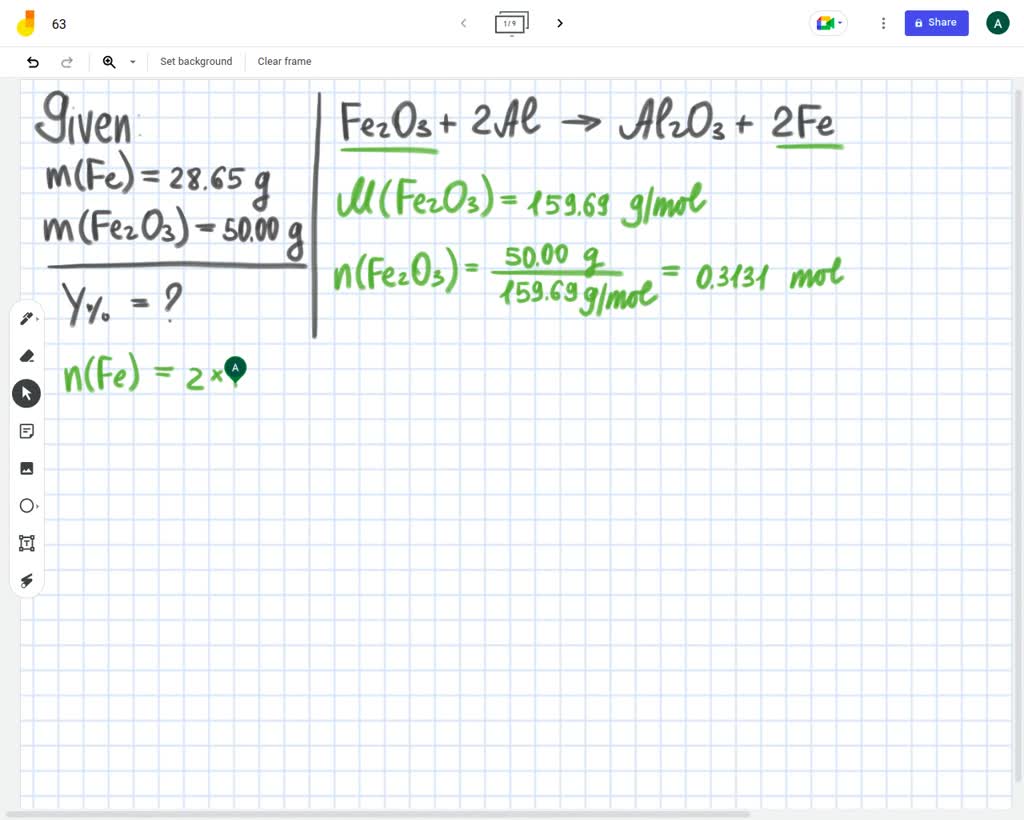 63
1/9
Share
A
Set background
Clear frame
Given:
m(Fe) = 28.65 g
m(Fe₂O₃) = 50.00 g
Y% = ?
Fe₂O₃ + 2Al → Al₂O₃ + 2Fe
M(Fe₂O₃) = 159.69 g/mol
n(Fe₂O₃) = 50.00 g / 159.69 g/mol = 0.3131 mol
n(Fe) = 2 ×
A